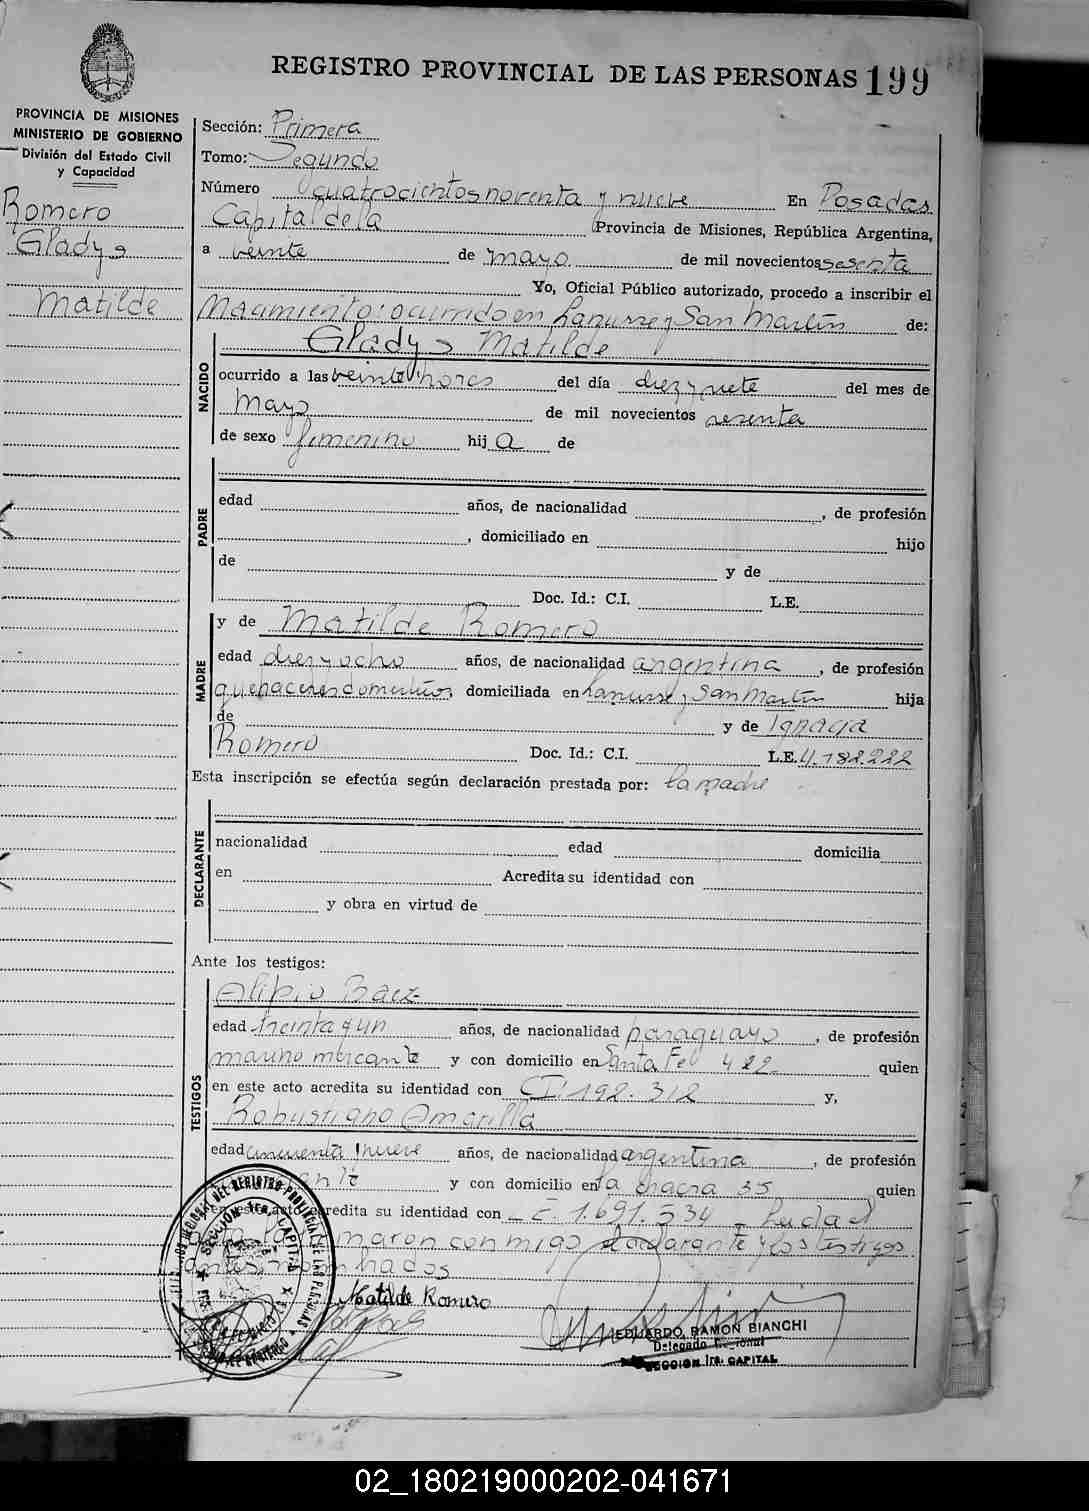 REGISTRO PROVINCIAL DE LAS PERSONAS 199
PROVINCIA DE MISIONES
MINISTERIO DE GOBIERNO
División del Estado Civil
y Capacidad
Romero
Gladys
Matilde
Sección: Primera
Tomo: Segundo
Número cuatrocientos noventa y nueve En Posadas
Capital de la Provincia de Misiones, República Argentina,
a veinte de mayo de mil novecientos sesenta
Yo, Oficial Público autorizado, procedo a inscribir el
Nacimiento: ocurrido en Lanusse y San Martín de:
NACIDO
Gladys Matilde
ocurrido a las veinte horas del día diez y siete del mes de
mayo de mil novecientos sesenta
de sexo femenino hij a de
PADRE
edad años, de nacionalidad , de profesión
, domiciliado en hijo
de y de
Doc. Id.: C.I. L.E.
MADRE
y de Matilde Romero
edad diez y ocho años, de nacionalidad argentina , de profesión
quehaceres domésticos domiciliada en Lanusse y San Martín hija
de y de Ignacia
Romero Doc. Id.: C.I. L.E. 4.182.222
Esta inscripción se efectúa según declaración prestada por: la madre
DECLARANTE
nacionalidad edad domicilia
en Acredita su identidad con
y obra en virtud de
Ante los testigos:
TESTIGOS
Alipio Baez
edad treinta y un años, de nacionalidad paraguayo , de profesión
marino mercante y con domicilio en Santa Fe 422 quien
en este acto acredita su identidad con CI. 192.312 y,
Robustiano Amarilla
edad cincuenta y nueve años, de nacionalidad argentina , de profesión
y con domicilio en la chacra 35 quien
en este acto acredita su identidad con 1.691.534
conmigo declarante y los testigos
Matilde Romero
EDUARDO RAMON BIANCHI
Delegado Regional
SECCION 1ra. CAPITAL
02_180219000202-041671